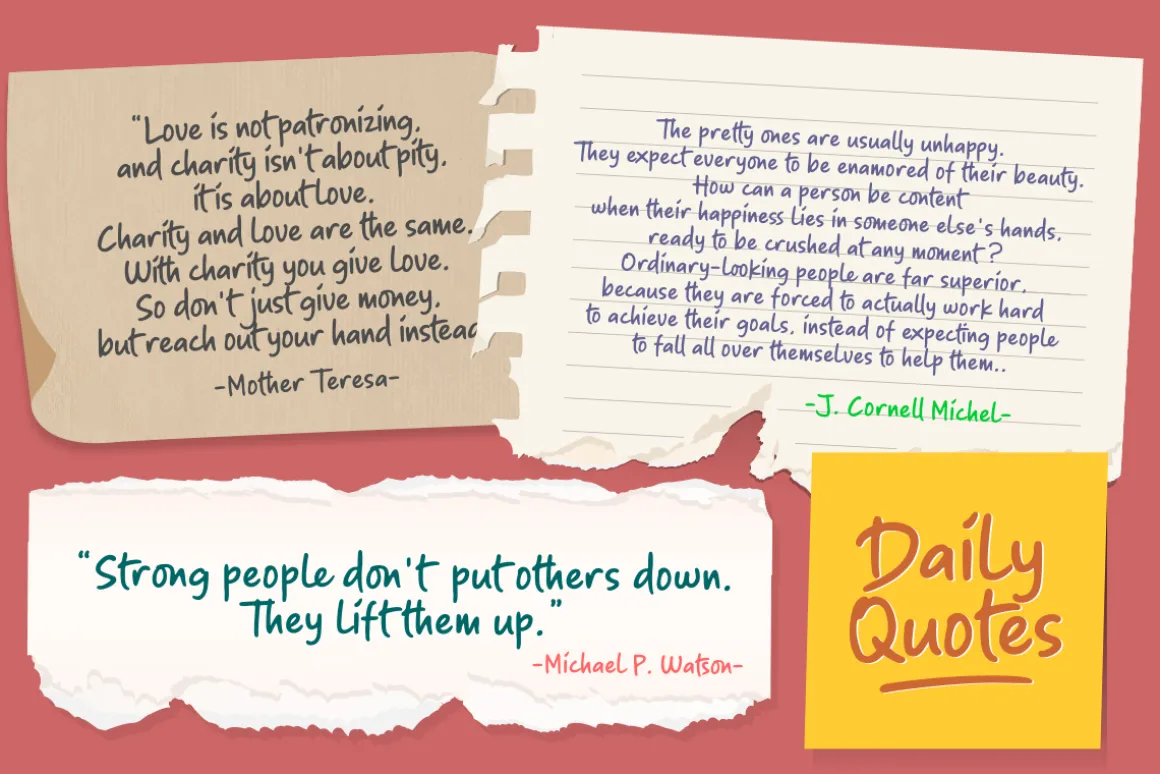 “Love is not patronizing.
and charity isn't about pity.
it is about love.
Charity and love are the same.
With charity you give love.
So don't just give money.
but reach out your hand instead
-Mother Teresa-
The pretty ones are usually unhappy.
They expect everyone to be enamored of their beauty.
How can a person be content
when their happiness lies in someone else's hands.
ready to be crushed at any moment?
Ordinary-looking people are far superior.
because they are forced to actually work hard
to achieve their goals. instead of expecting people
to fall all over themselves to help them..
-J. Cornell Michel-
“Strong people don't put others down.
They lift them up.”
-Michael P. Watson-
Daily
Quotes